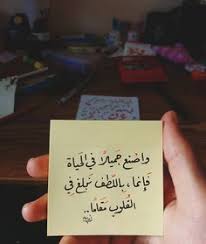 واصنع جميلاً في الحياة
فإنما، باللطف نبلغ في
القلوب مقاما..